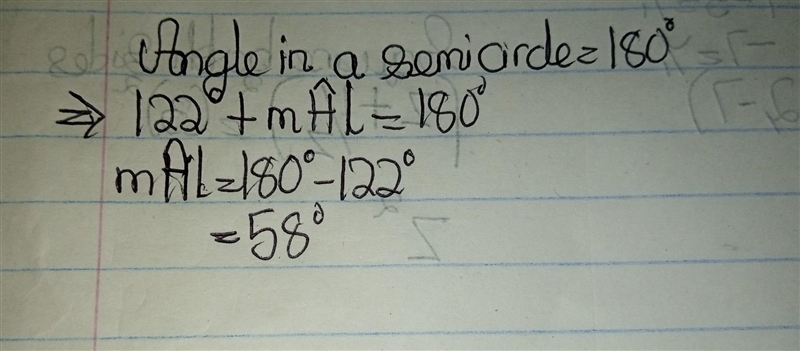 Angle in a semicircle = 180°
⇒ 122° + mÂL = 180°
mÂL = 180° - 122°
= 58°